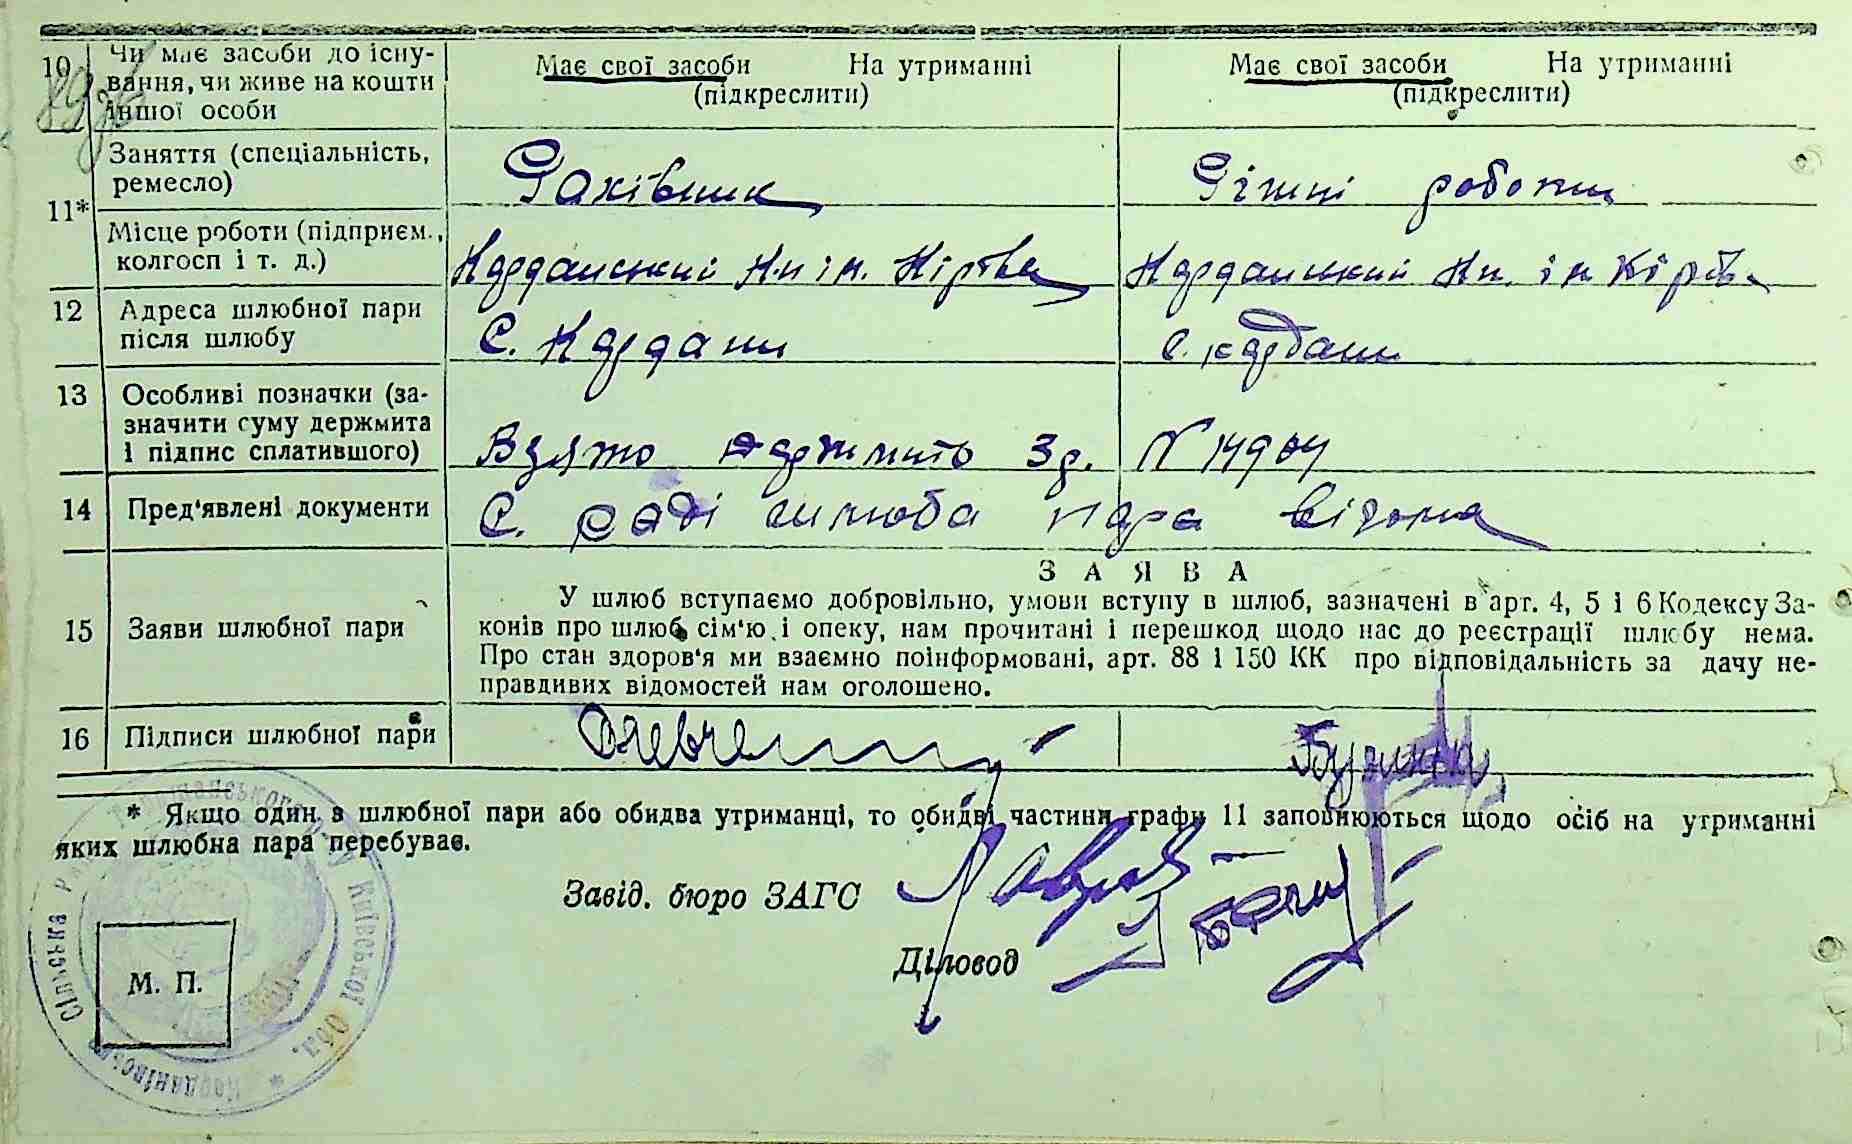 10 Чи має засоби до існу-
вання, чи живе на кошти
іншої особи
Має свої засоби На утриманні
(підкреслити)
Має свої засоби На утриманні
(підкреслити)
11*
Заняття (спеціальність,
ремесло)
Рахівник
Різні роботи
Місце роботи (підприєм.,
колгосп і т. д.)
ім. Кірова
ім Кірова
12 Адреса шлюбної пари
після шлюбу
С. Кардани
с. Кардани
13 Особливі позначки (за-
значити суму держмита
і підпис сплатившого)
Взято держмито 3 р. N 14904
14 Пред'явлені документи
С. раді шлюбна пара відома
15 Заяви шлюбної пари
ЗАЯВА
У шлюб вступаємо добровільно, умови вступу в шлюб, зазначені в арт. 4, 5 і 6 Кодексу За-
конів про шлюб, сім'ю і опеку, нам прочитані і перешкод щодо нас до реєстрації шлюбу нема.
Про стан здоров'я ми взаємно поінформовані, арт. 88 і 150 КК про відповідальність за дачу не-
правдивих відомостей нам оголошено.
16 Підписи шлюбної пари
* Якщо один з шлюбної пари або обидва утриманці, то обидві частини графи 11 заповнюються щодо осіб на утриманні
яких шлюбна пара перебуває.
Завід. бюро ЗАГС
Діловод
М. П.
Сільська
Київської Обл.